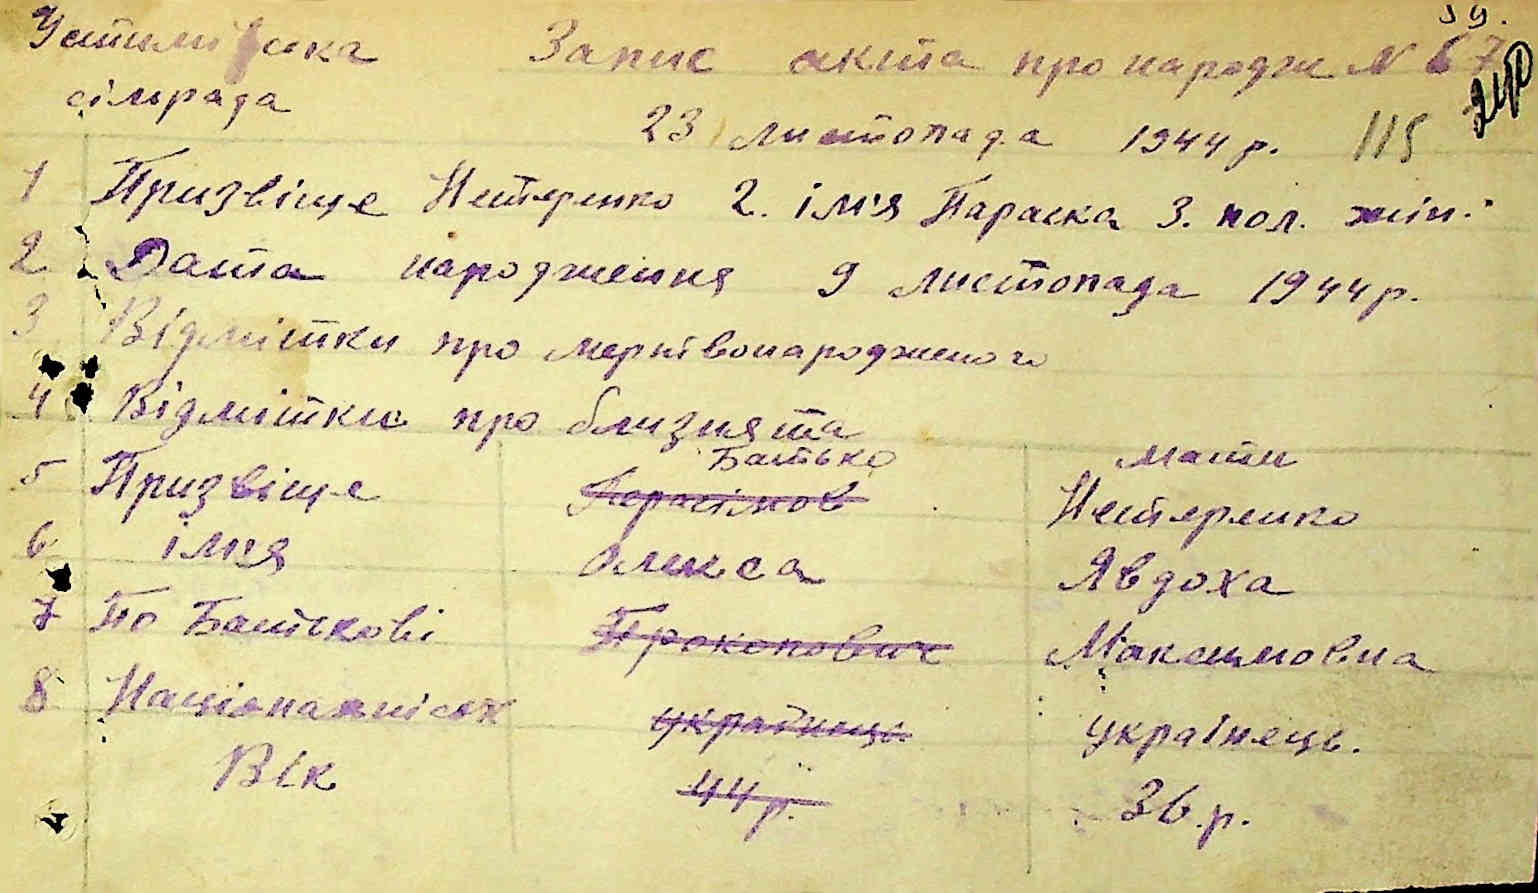 39.
Устимівська Запис акта про народж N 67
сільрада
23 листопада 1944 р. 115
1 Призвіще Нестеренко 2. ім'я Параска 3. пол. жін.
2 Дата народження 9 листопада 1944 р.
3 Відмітки про мертвонародженого
4 Відмітки про близнята
Батько мати
5 Призвіще Герасімов Нестеренко
6 імня Олекса Явдоха
7 По Батькові Прокопович Максимовна
8 Національність українець українець.
Вік 44 р. 36 р.